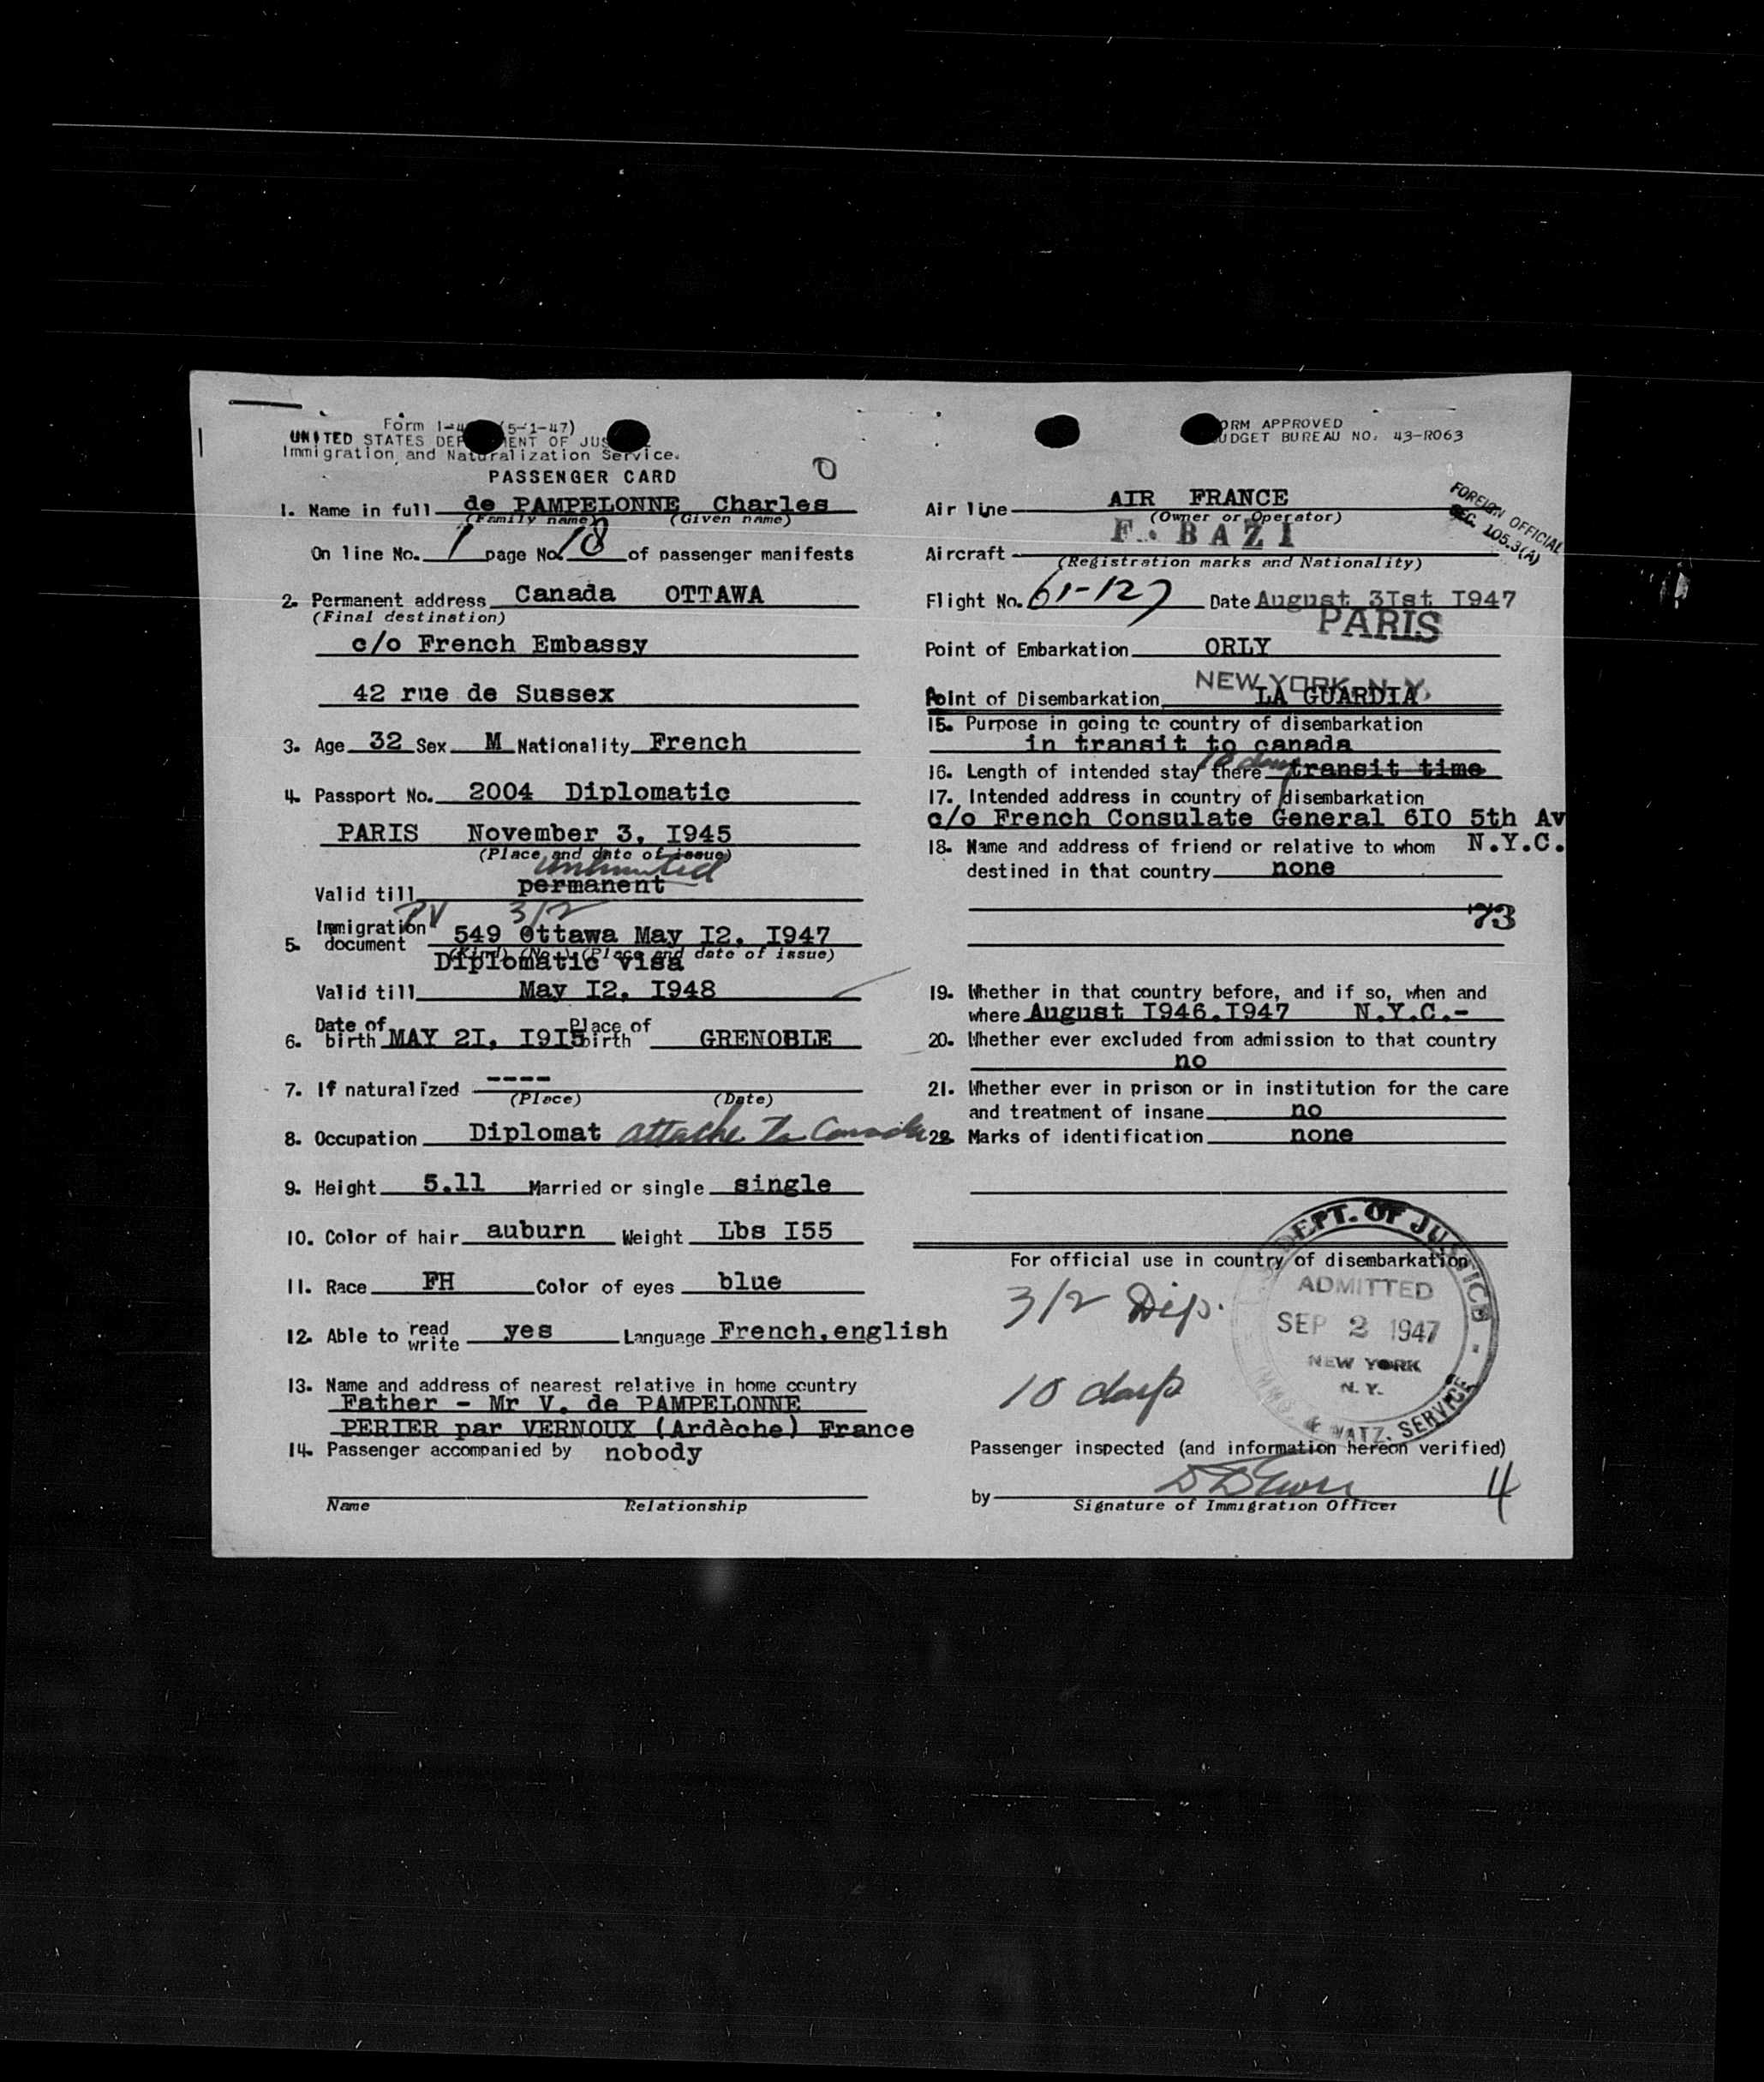 Form I-4 (5-1-47)
UNITED STATES DEP MENT OF JUS
Immigration and Naturalization Service.
PASSENGER CARD
0
1. Name in full de PAMPELONNE Charles
(Family name) (Given name)
On line No. 1 page No. 18 of passenger manifests
2. Permanent address Canada OTTAWA
(Final destination)
c/o French Embassy
42 rue de Sussex
3. Age 32 Sex M Nationality French
4. Passport No. 2004 Diplomatic
PARIS November 3, I945
(Place and date of issue)
unlimited
Valid till permanent
PV 3/2
5. Immigration document 549 Ottawa May I2, I947
(Kind) (No.) (Place and date of issue)
Diplomatic visa
Valid till May I2, I948
6. Date of birth MAY 2I, I9I5 Place of birth GRENOBLE
7. If naturalized ----
(Place) (Date)
8. Occupation Diplomat attache to Canada
9. Height 5.11 Married or single single
10. Color of hair auburn Weight Lbs I55
11. Race FH Color of eyes blue
12. Able to read write yes Language French,english
13. Name and address of nearest relative in home country
Father - Mr V. de PAMPELONNE
PERIER par VERNOUX (Ardèche) France
14. Passenger accompanied by nobody
Name Relationship
ORM APPROVED
UDGET BUREAU NO. 43-R063
FOREIGN OFFICIAL
SEC. 105.3(A)
Air line AIR FRANCE
(Owner or Operator)
Aircraft F. BAZI
(Registration marks and Nationality)
Flight No. 61-127 Date August 3Ist I947
PARIS
Point of Embarkation ORLY
NEW YORK, N.Y.
Point of Disembarkation LA GUARDIA
15. Purpose in going to country of disembarkation
in transit to canada
16. Length of intended stay there 10 days transit time
17. Intended address in country of disembarkation
c/o French Consulate General 6I0 5th Av
N.Y.C.
18. Name and address of friend or relative to whom
destined in that country none
73
19. Whether in that country before, and if so, when and
where August I946.I947 N.Y.C.-
20. Whether ever excluded from admission to that country
no
21. Whether ever in prison or in institution for the care
and treatment of insane no
22. Marks of identification none
For official use in country of disembarkation
3/2 Dip.
10 days
DEPT. OF JUSTICE
ADMITTED
SEP 2 1947
NEW YORK
N.Y.
IMMG. & NATZ. SERVICE
Passenger inspected (and information hereon verified)
by
Signature of Immigration Officer
4